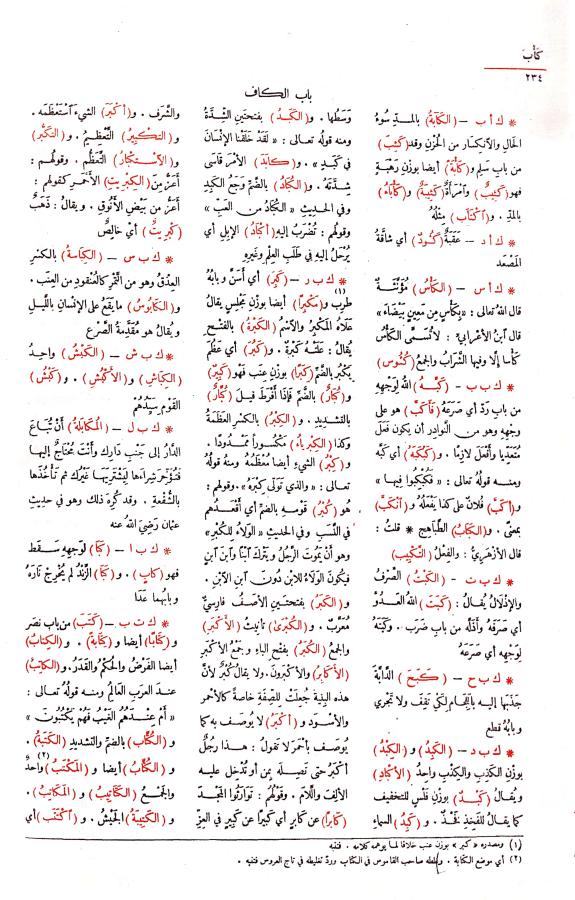 كَأَبَ
٢٣٤
باب الكاف
* ك أ ب – (الكَآبَةُ) بالمدّ سوءُ
الحال والآنكسار من الحُزْن وقد (كَئِبَ)
من باب سَلِم و(كَأْبَةً) أيضا بوزن رَهْبَةٍ
فهو (كَئِيبٌ) وآمْرَأَةٌ (كَئِيبَةٌ) و(كَأْبَاءُ)
بالمدّ . و(آكْتَأَبَ) مِثْلُهُ
* ك أ د – عَقَبَةٌ (كَئُودٌ) أى شاقَّةُ
المَصْعَد
* ك أ س – (الكَأْسُ) مُؤَنَّثَةٌ
قال اللهُ تعالى : « بِكَأْسٍ مِن مَعِينٍ بَيْضَاءَ »
قال ابنُ الأعرابيّ : لا تُسمَّى الكَأْسُ
كَأسا إلّا وفيها الشَّرابُ والجمعُ (كُئُوس)
* ك ب ب – (كَبَّهُ) اللهُ لِوَجْهِهِ
من باب رَدّ أى صَرَعَهُ (فَأَكَبَّ) هو على
وجهِه وهو من النَّوادِر أن يكون فَعَلَ
مُتَعَدِّيا وأَفْعَلَ لازِما . و(كَبْكَبَهُ) أى كَبَّه
ومنه قولُه تعالى : « فَكُبْكِبُوا فِيهَا »
و(أكَبَّ) فُلانٌ على كذا يَفْعَلُهُ و(آنْكَبَّ)
بمعنًى . و(الكَبَابُ) الطَّباهِج * قلتُ :
قال الأزهريُّ : والفِعْلُ (التَّكْبِيبُ)
* ك ب ت – (الكَبْتُ) الصَّرْفُ
والإذْلالُ يُقالُ : (كَبَتَ) اللهُ العَدُوَّ
أى صَرَفَه وأذَلَّه من باب ضَرَب . وكَبَتَهُ
لِوَجْهِهِ أى صَرَعَهُ
* ك ب ح – (كَبَحَ) الدَّابَّةَ
جَذَبَها إليه باللِّجام لكى تَقِفَ ولا تَجْرِى
وبابُهُ قَطَع
* ك ب د – (الكَبِدُ) و(الكِبْدُ)
بوزن الكَذِبِ والكِذْبِ واحِدُ (الأكْبادِ)
ويُقالُ (كَبْدٌ) بوزن فَلْسٍ للتخفيف
كما يقال للفَخِذِ فَخْذٌ . و(كَبِدُ) السماءِ
وَسَطُها . و(الكَبَدُ) بفتحتين الشِّدَّةُ
ومنه قولُه تعالى : « لَقَدْ خَلَقْنَا الإنْسَانَ
فِى كَبَدٍ » . و(كابَدَ) الأمْرَ قاسَى
شِدَّتَهُ . و(الكُبَادُ) بالضَّمّ وَجَعُ الكَبِدِ
وفى الحديث « الكُبَادُ من العَبِّ »
وقولُهم : تُضْرَبُ إليه (أكْبَادُ) الإبل أى
يُرْحَلُ إليه فى طَلَبِ العِلْمِ وغَيرِهِ
* ك ب ر – (كَبِرَ) أى أَسَنَّ وبابُهُ
طَرِبَ و(مَكْبِرًا)(١) أيضا بوزن مَجْلِسٍ يقالُ
عَلَاهُ المَكْبِرُ والآسْمُ (الكَبْرَةُ) بالفتح
يُقالُ : عَلَتْهُ كَبْرَةٌ . و(كَبُرَ) أى عَظُمَ
يَكْبُرُ بالضَّمّ (كِبَرًا) بوزن عِنَبٍ فهو (كَبِيرٌ)
و(كُبَارٌ) بالضَّمّ فإذا أَفْرَطَ قيل (كُبَّارٌ)
بالتشديد . و(الكِبْرُ) بالكسر العَظَمَةُ
وكذا (الكِبْرِياءُ) مَكسُورا مَمْدُودا .
و(كِبْرُ) الشىءِ أيضا مُعْظَمُهُ ومنهُ قولُهُ
تعالى : « والذى تَوَلَّى كِبْرَهُ » . وقولهم :
هُوَ (كُبْرُ) قَوْمِهِ بالضم أى أقْعَدُهم
فى النَّسَب وفى الحديث « الوَلاءُ لِلْكُبْرِ »
وهو أن يَمُوتَ الرَّجُلُ ويَتْرُكَ آبْنًا وآبْنَ آبْنٍ
فيكونُ الوَلاءُ للابن دُونَ آبْنِ الآبْنِ .
و(الكَبَرُ) بفتحتين الأَصَف فارسىٌّ
مُعَرَّبٌ . و(الكُبْرَى) تأنيثُ (الأكْبَرِ)
والجمعُ (الكُبَرُ) بفتح الباءِ وجَمْعُ الأكْبَرِ
(الأَكَابِرُ) والأكْبَرُونَ . ولا يقالُ كُبْرٌ لأنَّ
هذه البِنْيةَ جُعِلَتْ للصِّفَةِ خاصةً كالأحمر
والأسْوَد و(أكْبَرُ) لا يُوصَف به كما
يُوصَف بأحْمَرَ لا تَقُولُ : هذا رجُلٌ
أكْبَرُ حتى تَصِلَه بِمِن أو تُدْخِلَ عليه
الألِفَ واللّامَ . وقولُهُم : تَوارَثُوا المَجْدَ
(كَابِرًا) عن كابِرٍ أى كَبِيرًا عن كَبِيرٍ فى العِزِّ
والشَّرَف . و(أكْبَرَ) الشىءَ آسْتَعْظَمَه .
و(التَّكْبِيرُ) التَّعْظِيمُ . و(التَّكَبُّرُ)
و(الآسْتِكْبارُ) التَّعَظُّمُ . وقولُهم :
أَعَزُّ مِنَ (الكِبْرِيتِ) الأحْمَرِ كقولهم :
أعَزُّ من بَيْضِ الأَنُوقِ . ويقالُ : ذَهَبٌ
(كِبْرِيتٌ) أى خالِصٌ
* ك ب س – (الكِبَاسَةُ) بالكسر
العِذْقُ وهو من التَّمْرِ كالعُنْقودِ من العِنَب .
و(الكَابُوسُ) ما يَقَعُ على الإنسانِ بالليلِ
ويُقالُ هو مُقَدِّمَةُ الصَّرْع
* ك ب ش – (الكَبْشُ) واحِدُ
(الكِبَاشِ) و(الأكْبُشِ) . و(كَبْشُ)
القَوْمِ سَيِّدُهُم
* ك ب ل – (المُكَابَلَةُ) أنْ تُبَاعَ
الدَّارُ إلى جَنْبِ دَارِكَ وأنْتَ تَحْتَاجُ إليها
فَتُؤَخِّرَ شِراءَها لِيَشْتَرِيَها غَيْرُكَ ثم تَأخُذَها
بالشُّفْعَةِ . وقد كُرِهَ ذلك وهو فى حديثِ
عثمان رَضِىَ اللهُ عنه
* ك ب ا – (كَبَا) لوَجهِه سَقَط
فهو (كابٍ) . و(كَبَا) الزَّنْدُ لم يُخْرِجْ نارَهُ
وبابُهما عَدَا
* ك ت ب – (كَتَبَ) من باب نصَر
و(كِتَابًا) أيضا و(كِتَابَةً) . و(الكِتابُ)
أيضا الفَرْضُ والحُكْمُ والقَدَرُ . و(الكاتِبُ)
عند العرب العَالِمُ ومنه قولُهُ تعالى :
« أَمْ عِنْدَهُمُ الغَيْبُ فَهُمْ يَكْتُبُونَ »
و(الكُتَّابُ) بالضّمّ والتشديدِ (الكَتَبَةُ) .
و(الكُتَّابُ) أيضا و(المَكْتَبُ)(٢) واحدٌ
والجمعُ (الكَتَاتِيبُ) و(المَكَاتِبُ) .
و(الكَتِيبَةُ) الجَيْشُ . و(آكْتَتَبَ) أى
(١) ومصدره « كبر » بوزن عنب خلافا لما يوهمه كلامه . فتنبه
(٢) أى موضع الكتابة . وغلطه صاحب القاموس فى الكتاب ورد تغليطه فى تاج العروس فتنبه .